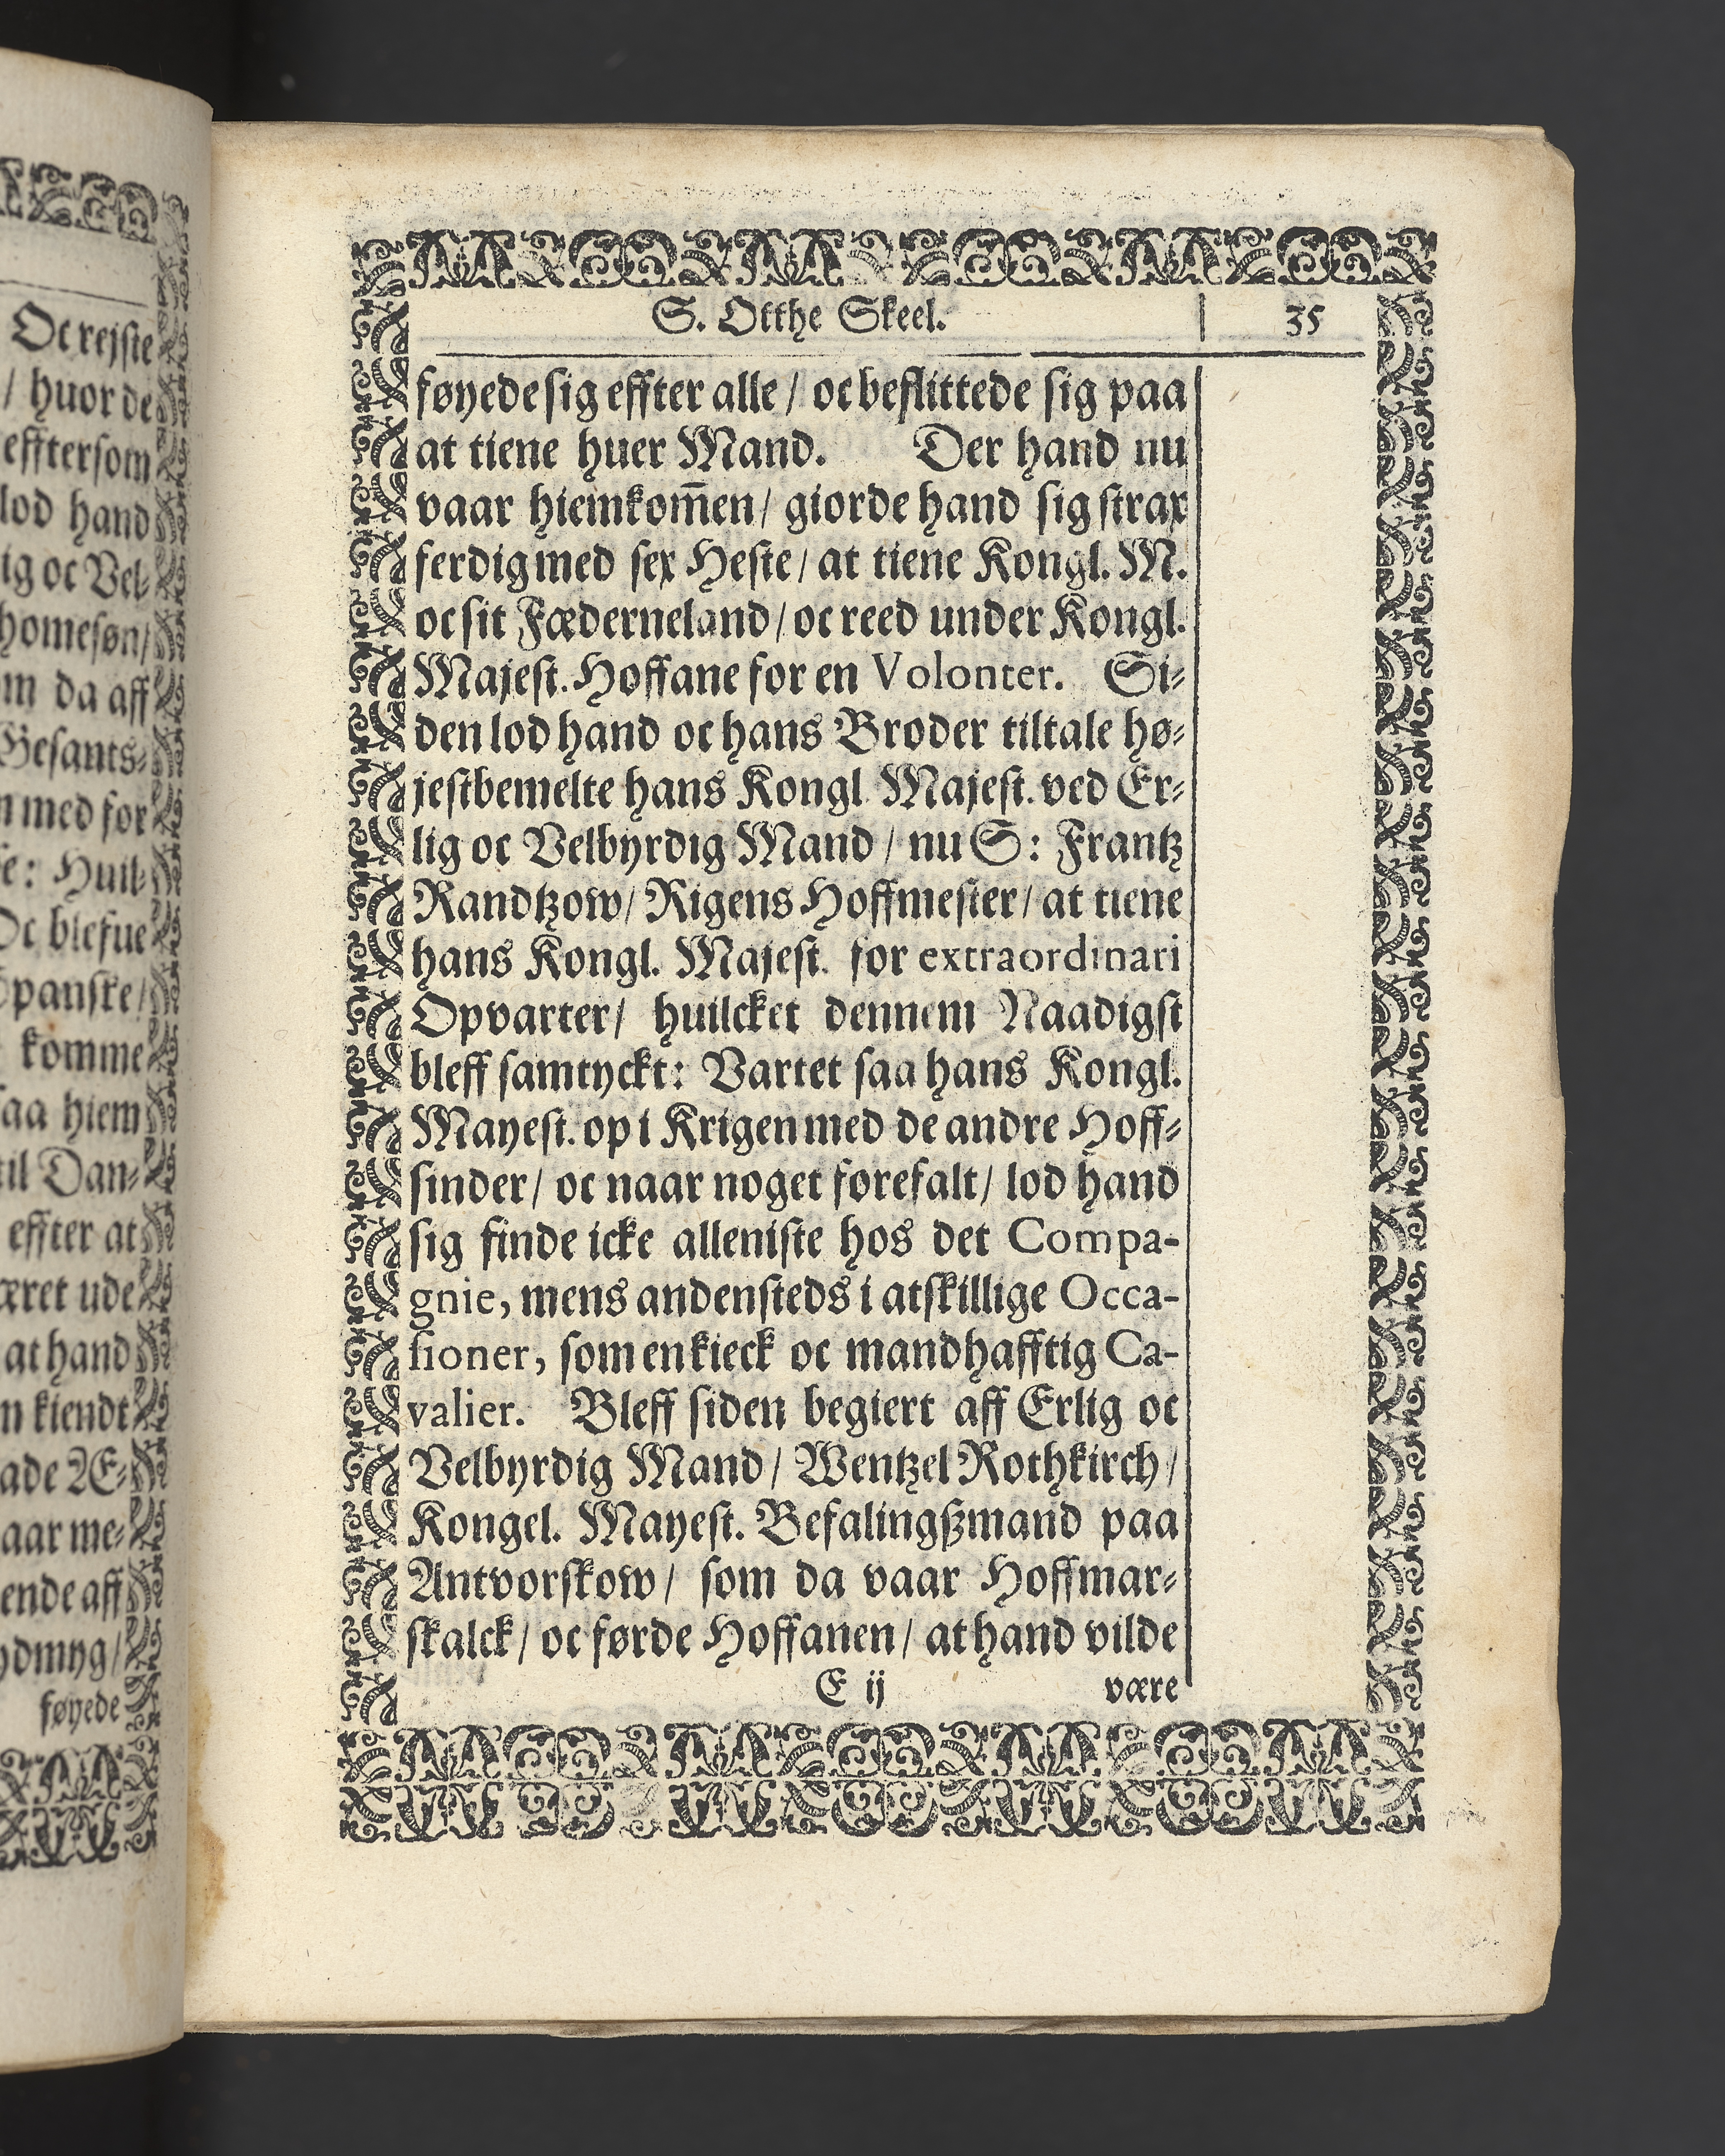 Oc rejste
/ huor de
efftersom
lod hand
ig oc Vel-
homesøn/
om da aff
Gesants-
n med for
se: Huil-
Oc blefue
Spanske/
komme
saa hiem
til Dan-
effter at
æret ude
at hand
n kiendt
ade Æ-
aar me-
ende aff
ydmyg/
føyede
S. Otthe Skeel. 35
føyede sig effter alle/ oc beflittede sig paa
at tiene huer Mand. Der hand nu
vaar hiemkom̄en/ giorde hand sig strax
ferdig med sex Heste/ at tiene Kongl. M.
oc sit Fæderneland/ oc reed under Kongl.
Majest. Hoffane for en Volonter. Si-
den lod hand oc hans Broder tiltale hø-
jestbemelte hans Kongl. Majest. ved Er-
lig oc Velbyrdig Mand/ nu S: Frantz
Randtzow/ Rigens Hoffmester/ at tiene
hans Kongl. Majest. for extraordinari
Opvarter/ huilcket dennem Naadigst
bleff samtyckt: Vartet saa hans Kongl.
Mayest. op i Krigen med de andre Hoff-
sinder/ oc naar noget forefalt/ lod hand
sig finde icke alleniste hos det Compa-
gnie, mens andensteds i atskillige Occa-
sioner, som en kieck oc mandhafftig Ca-
valier. Bleff siden begiert aff Erlig oc
Velbyrdig Mand/ Wentzel Rothkirch/
Kongel. Mayest. Befalingßmand paa
Antvorskow/ som da vaar Hoffmar-
skalck/ oc førde Hoffanen/ at hand vilde
E ij være